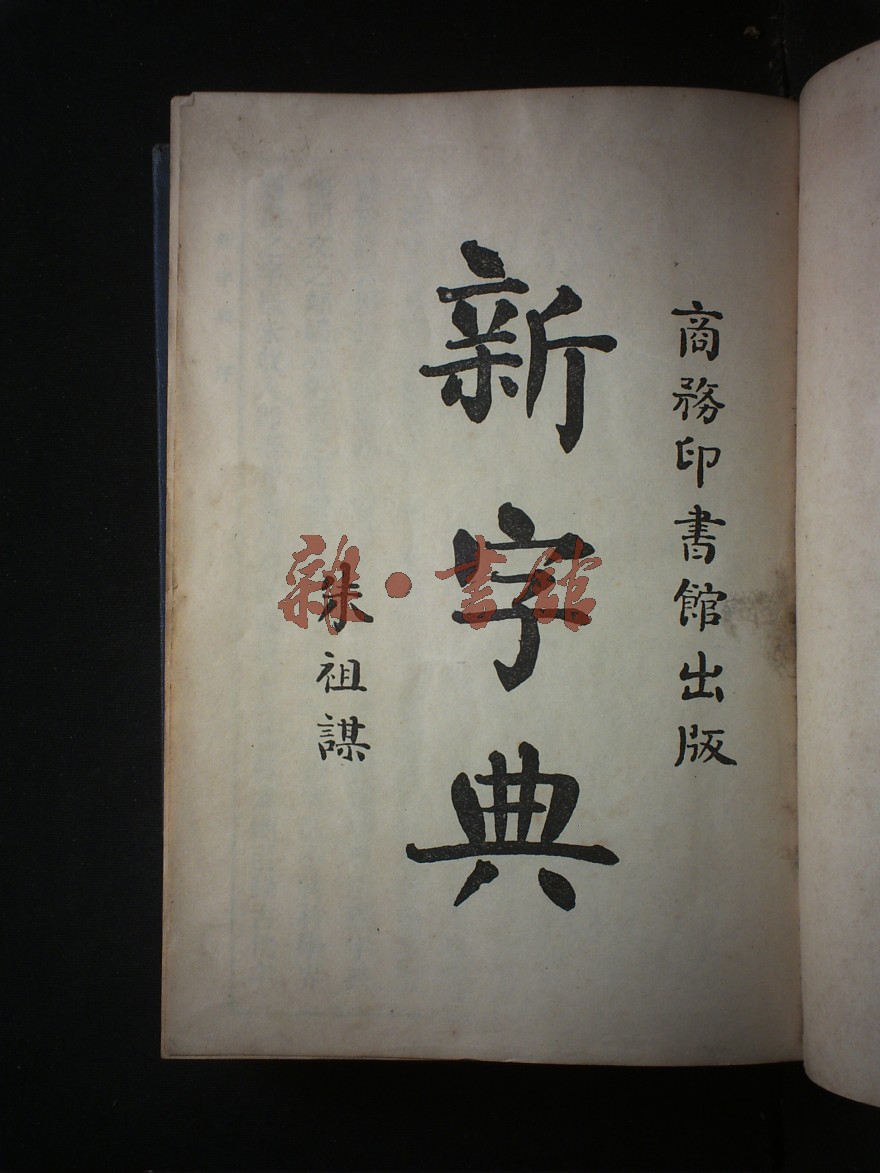 商務印書館出版
新字典
朱祖謀
雜·書館